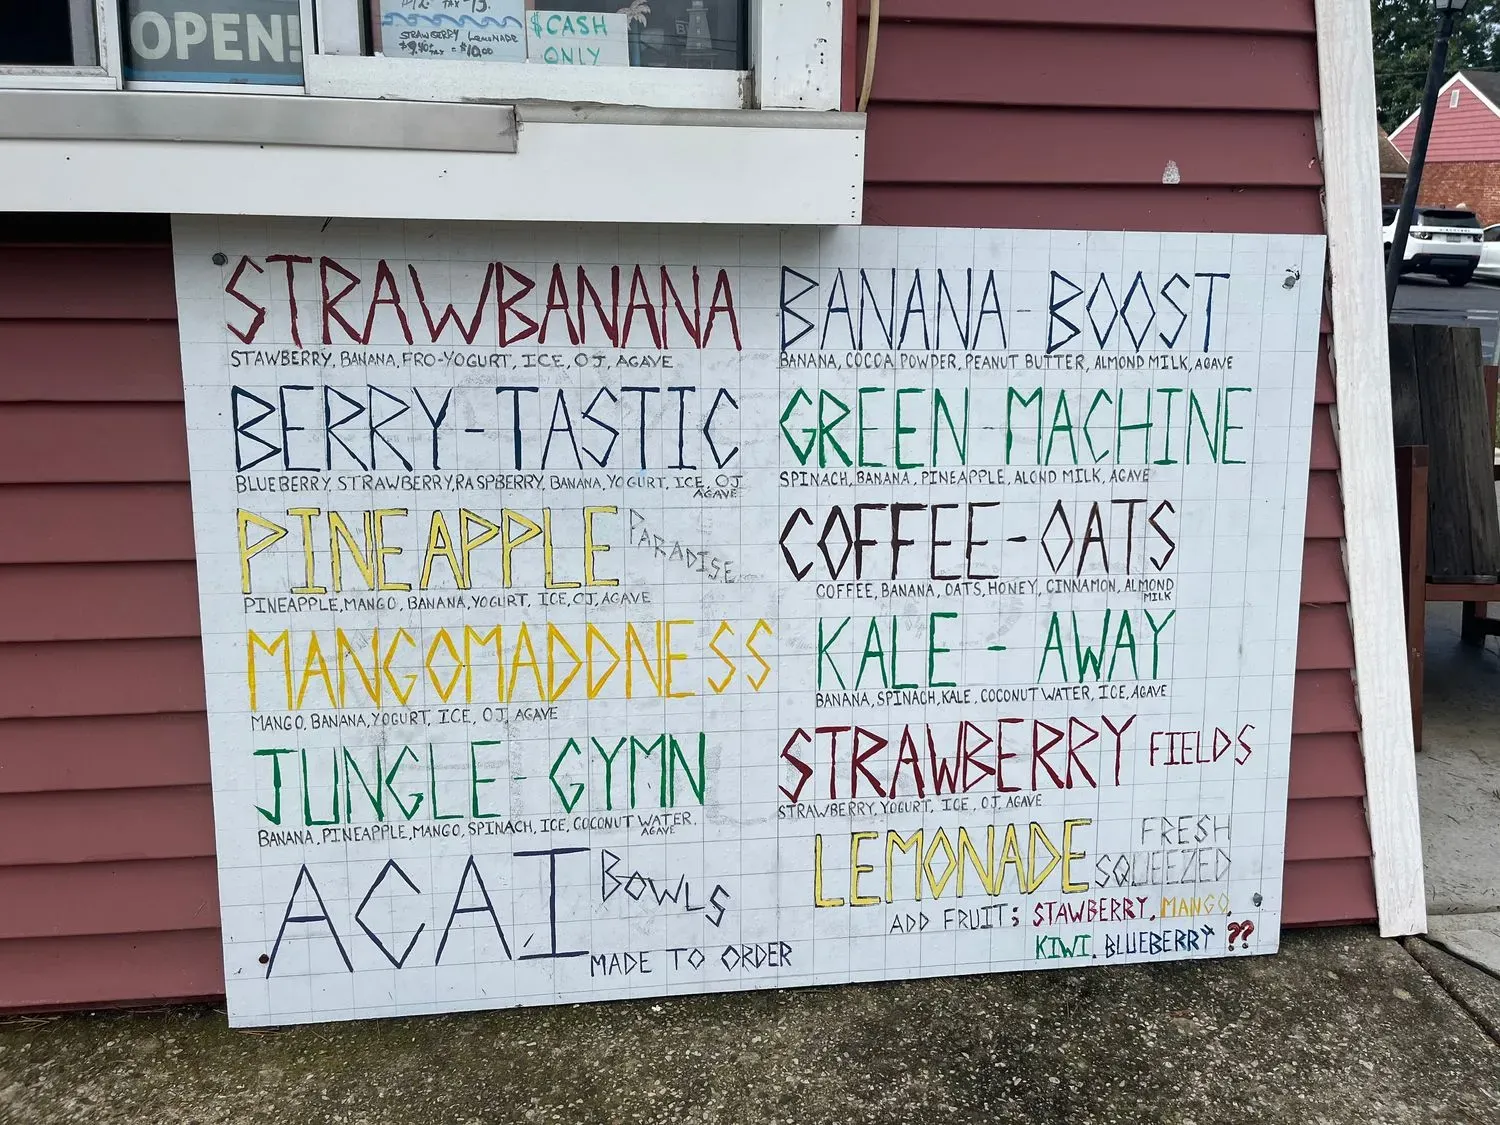 OPEN!
STRAWBERRY LEMONADE
$CASH
ONLY
STRAWBANANA
STAWBERRY, BANANA, FRO-YOGURT, ICE, OJ, AGAVE
BERRY-TASTIC
BLUEBERRY, STRAWBERRY, RASPBERRY, BANANA, YOGURT, ICE, OJ
AGAVE
PINEAPPLE PARADISE
PINEAPPLE, MANGO, BANANA, YOGURT, ICE, OJ, AGAVE
MANGOMADDNESS
MANGO, BANANA, YOGURT, ICE, OJ, AGAVE
JUNGLE-GYMN
BANANA, PINEAPPLE, MANGO, SPINACH, ICE, COCONUT WATER,
AGAVE
ACAI BOWLS
MADE TO ORDER
BANANA-BOOST
BANANA, COCOA POWDER, PEANUT BUTTER, ALMOND MILK, AGAVE
GREEN-MACHINE
SPINACH, BANANA, PINEAPPLE, ALOND MILK, AGAVE
COFFEE-OATS
COFFEE, BANANA, OATS, HONEY, CINNAMON, ALMOND
MILK
KALE - AWAY
BANANA, SPINACH, KALE, COCONUT WATER, ICE, AGAVE
STRAWBERRY FIELDS
STRAWBERRY, YOGURT, ICE, OJ, AGAVE
LEMONADE FRESH
SQUEEZED
ADD FRUIT; STAWBERRY, MANGO,
KIWI, BLUEBERRY ??